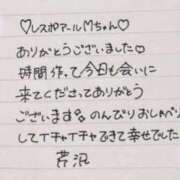 ♡レスポアールMちゃん♡
ありがとうございました♡
時間作って今日も会いに
来てくださってありがとう
ございます。のんびりおしゃべり
してイチャイチャできて幸せでした
芹沢